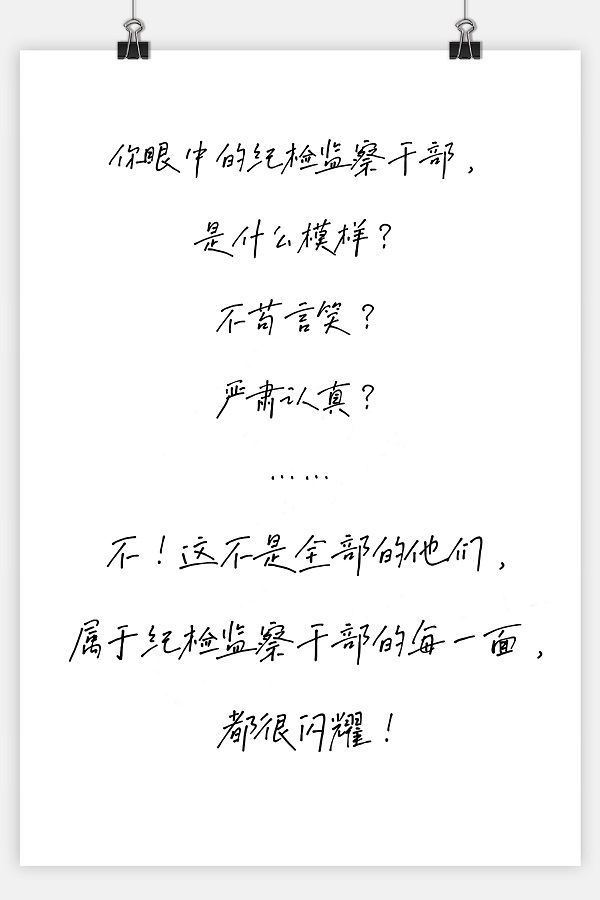 你眼中的纪检监察干部，
是什么模样？
不苟言笑？
严肃认真？
……
不！这不是全部的他们，
属于纪检监察干部的每一面，
都很闪耀！